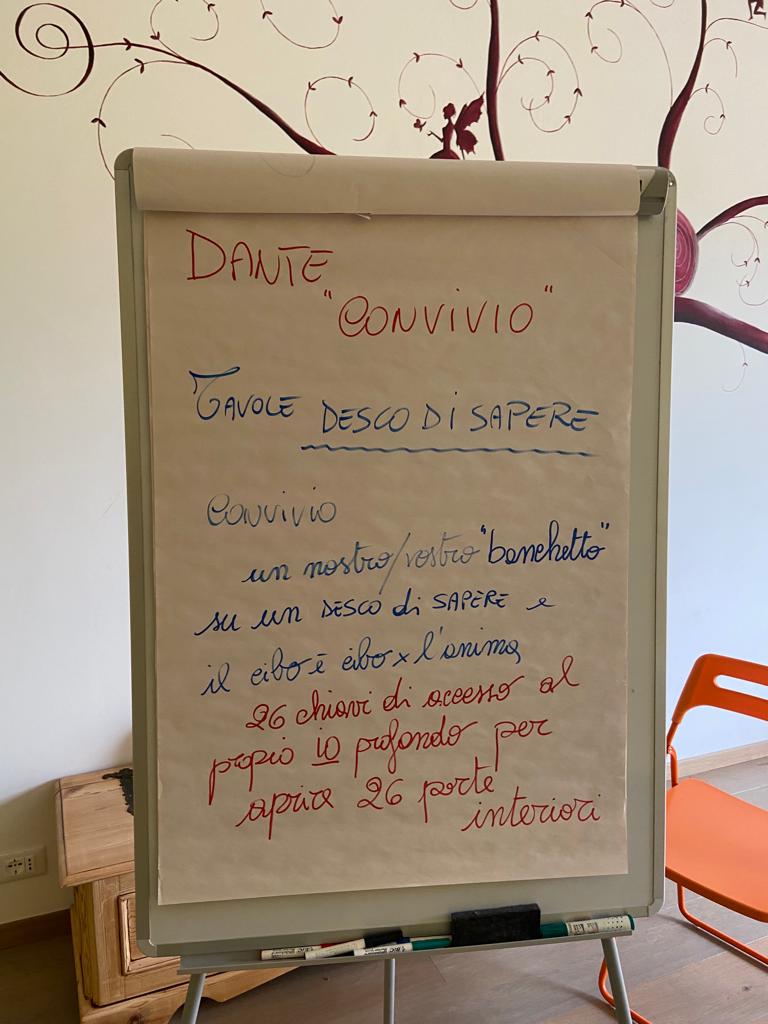 DANTE
"CONVIVIO"
TAVOLE DESCO DI SAPERE
CONVIVIO
un nostro/vostro "banchetto"
su un DESCO di SAPERE e
il cibo è cibo x l'anima
26 chiavi di accesso al
propio io profondo per
aprire 26 porte
interiori